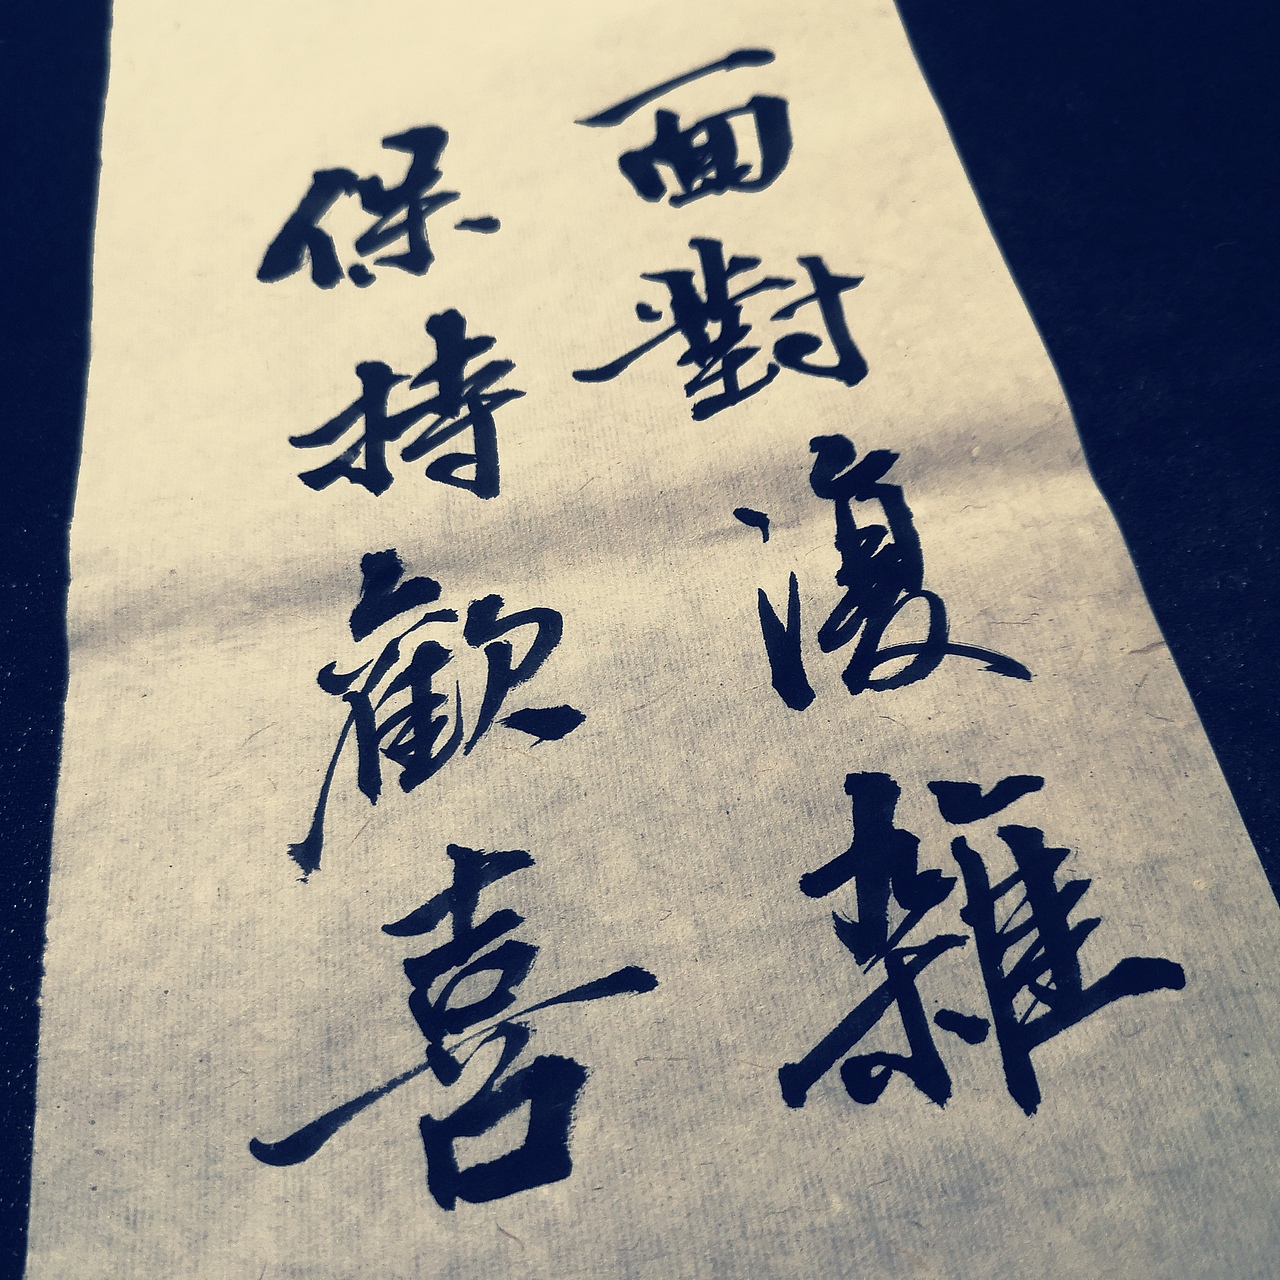 面對復雜
保持歡喜